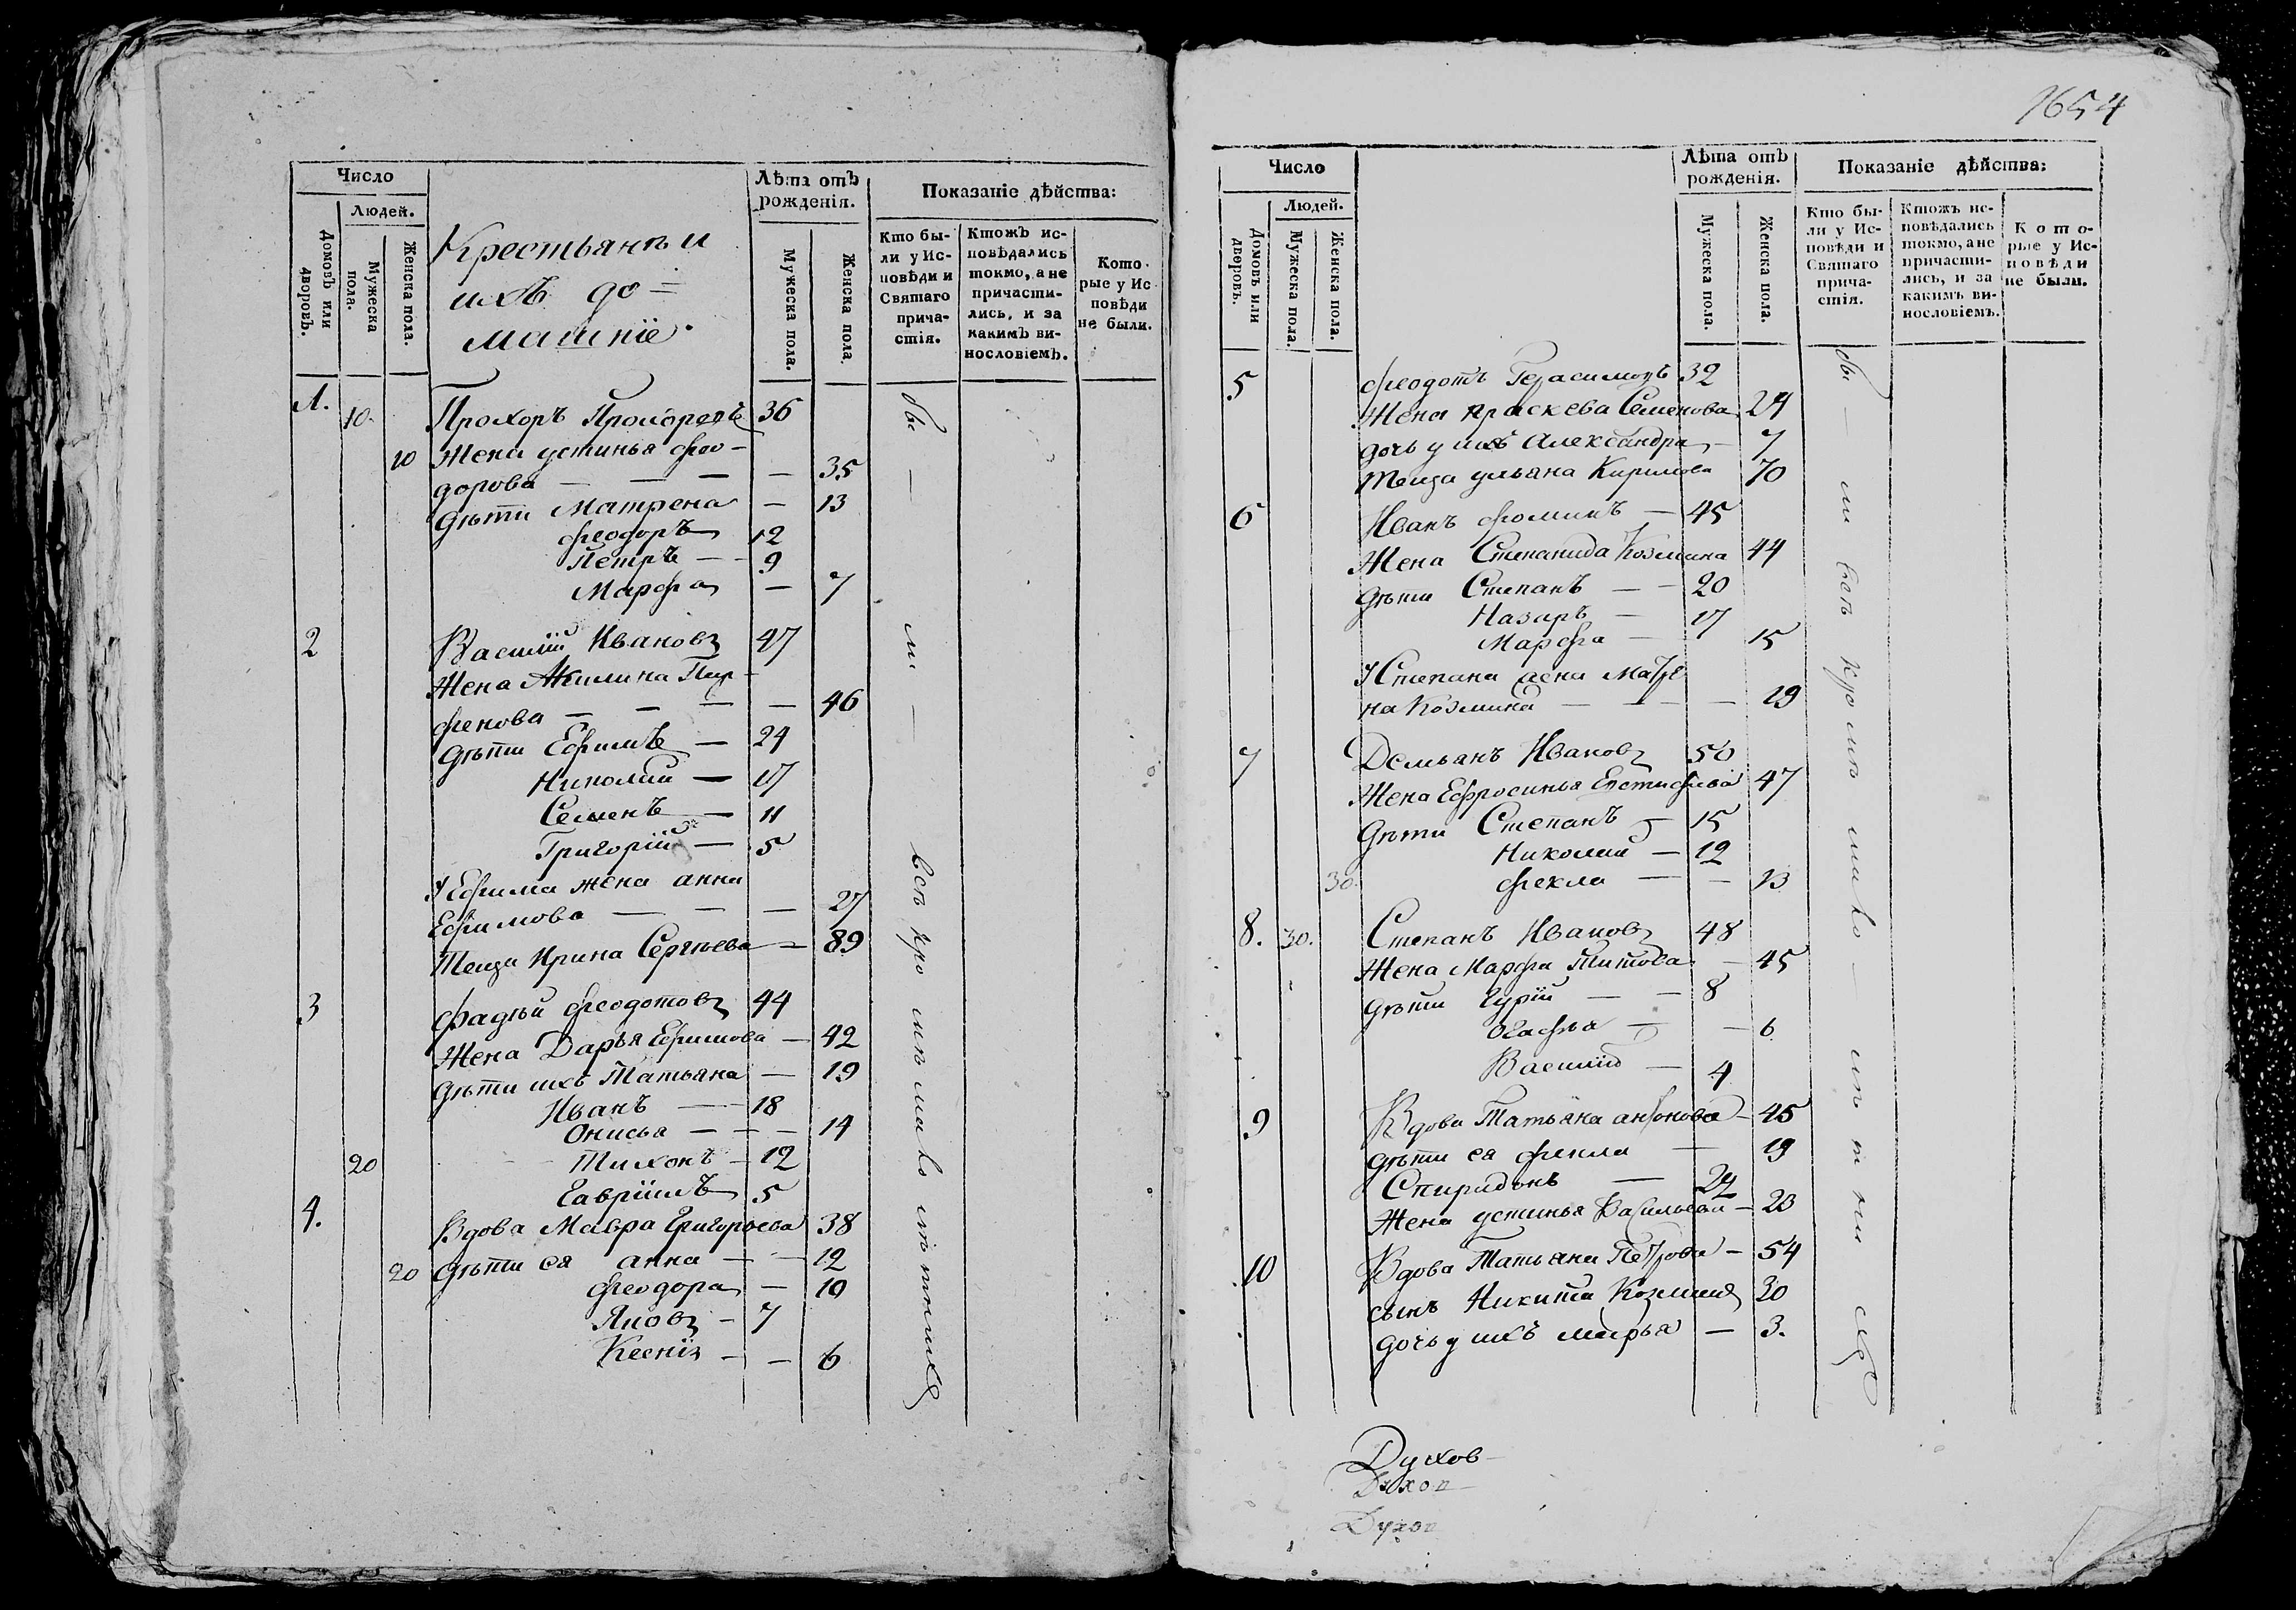 Число
Людей.
Домовъ или дворовъ.
Мужеска пола.
Женска пола.
Крестьянъ и
ихъ до=
машніе.
Лѣта отъ рожденія.
Мужеска пола.
Женска пола.
Показаніе дѣйства:
Кто бы-
ли у Ис-
повѣди и
Святаго
прича-
стія.
Ктожъ ис-
повѣдались
токмо, а не
причасти-
лись, и за
какимъ ви-
нословіемъ.
Кото-
рые у Ис
повѣди
не были.
1. 10. Прохоръ Прохоровъ 36
10 Жена устинья фео-
дорова — — — — 35
дѣти Матрена — 13
феодоръ 12
Петръ — 9
Марфа — 7
2 Василій Ивановъ 47
Жена Акилина Пар-
фенова — — — — 46
дѣти Ефимъ — 24
Николай — 17
Семенъ — 11
Григорій — 5
У Ефима жена анна
Ефимова — — — 27
теща Ирина Сергѣева — 89
3 фадѣй феодотовъ 44
Жена Дарья Ефимова — 42
дѣти ихъ Татьяна — 19
Иванъ — 18
Онисья — — — 14
20 Тихонъ — 12
Гавріилъ 5
4. Вдова Мавра Григорьева 38
20 дѣти ея анна — — 12
феодора — 10
Яковъ — 7
Ксенія — — 6
бы — ли — всѣ кро мѣ ма ло лѣ тныхъ
1654
Число
Людей.
Домовъ или дворовъ.
Мужеска пола.
Женска пола.
Лѣта отъ рожденія.
Мужеска пола.
Женска пола.
Показаніе дѣйства:
Кто бы-
ли у Ис-
повѣди и
Святаго
прича-
стія.
Ктожъ ис-
повѣдались
токмо, а не
причасти-
лись, и за
какимъ ви-
нословіемъ.
Кото-
рые у Ис-
повѣди
не были.
5 феодотъ Герасимовъ 32
Жена праскева Семенова 24
дочь у ихъ Александра — 7
теща ульана Кирилова 70
6 Иванъ фоминъ — 45
Жена Степанида Козмина 44
дѣти Степанъ — — 20
Назаръ — 17
Марфа — 15
У Степана жена Матре
на Козмина — — — 19
7 Демьанъ Ивановъ 50
Жена Ефросинья Евстифѣва 47
дѣти Степанъ — 15
Николай — 12
30. фекла — — 13
8. 30. Степанъ Ивановъ 48
Жена Марфа Титова — 45
дѣти Гурій — — 8
Огафья — — 6
Василій — 4
9 Вдова Татьяна антонова — 45
дѣти ея фекла — 19
Спиридонъ — 24
Жена устинья Васильева — 23
10 Вдова Татьяна Петрова — 54
сынъ Никита Козминъ 30
дочь у ихъ марья — 3.
бы — ли всѣ кромѣ мало — лѣ т ни хъ
Духов
Духов
Духов